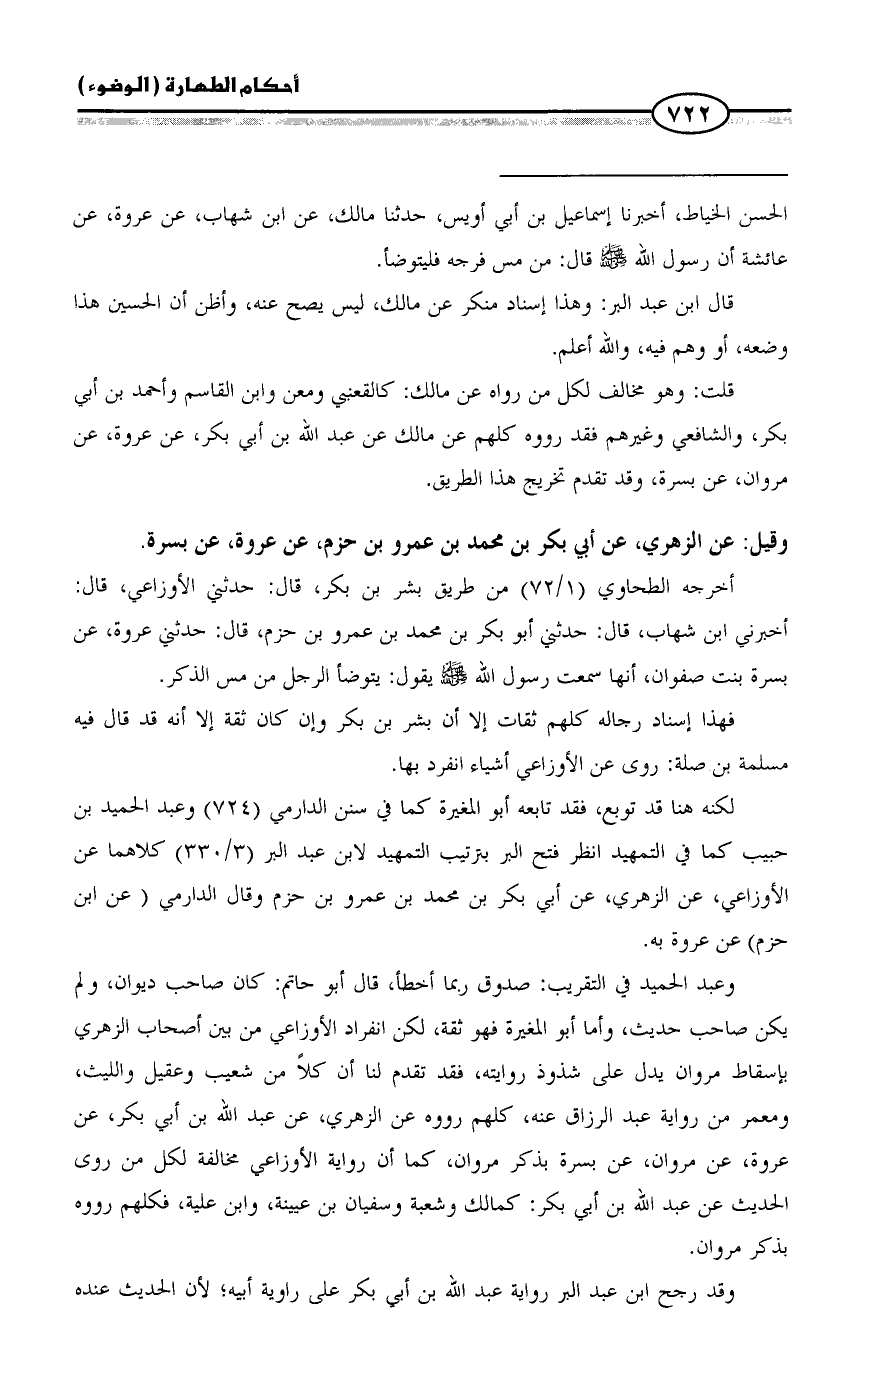 أحكام الطهارة (الوضوء)
٧٢٢
الحسن الخياط، أخبرنا إسماعيل بن أبي أويس، حدثنا مالك، عن ابن شهاب، عن عروة، عن
عائشة أن رسول الله ﷺ قال: من مس فرجه فليتوضأ.
قال ابن عبد البر: وهذا إسناد منكر عن مالك، ليس يصح عنه، وأظن أن الحسين هذا
وضعه، أو وهم فيه، والله أعلم.
قلت: وهو مخالف لكل من رواه عن مالك: كالقعنبي ومعن وابن القاسم وأحمد بن أبي
بكر، والشافعي وغيرهم فقد رووه كلهم عن مالك عن عبد الله بن أبي بكر، عن عروة، عن
مروان، عن بسرة، وقد تقدم تخريج هذا الطريق.
وقيل: عن الزهري، عن أبي بكر بن محمد بن عمرو بن حزم، عن عروة، عن بسرة.
أخرجه الطحاوي (٧٢/١) من طريق بشر بن بكر، قال: حدثني الأوزاعي، قال:
أخبرني ابن شهاب، قال: حدثني أبو بكر بن محمد بن عمرو بن حزم، قال: حدثني عروة، عن
بسرة بنت صفوان، أنها سمعت رسول الله ﷺ يقول: يتوضأ الرجل من مس الذكر.
فهذا إسناد رجاله كلهم ثقات إلا أن بشر بن بكر وإن كان ثقة إلا أنه قد قال فيه
مسلمة بن صلة: روى عن الأوزاعي أشياء انفرد بها.
لكنه هنا قد توبع، فقد تابعه أبو المغيرة كما في سنن الدارمي (٧٢٤) وعبد الحميد بن
حبيب كما في التمهيد انظر فتح البر بترتيب التمهيد لابن عبد البر (٣٣٠/٣) كلاهما عن
الأوزاعي، عن الزهري، عن أبي بكر بن محمد بن عمرو بن حزم وقال الدارمي ( عن ابن
حزم) عن عروة به.
وعبد الحميد في التقريب: صدوق ربما أخطأ، قال أبو حاتم: كان صاحب ديوان، ولم
يكن صاحب حديث، وأما أبو المغيرة فهو ثقة، لكن انفراد الأوزاعي من بين أصحاب الزهري
بإسقاط مروان يدل على شذوذ روايته، فقد تقدم لنا أن كلاً من شعيب وعقيل والليث،
ومعمر من رواية عبد الرزاق عنه، كلهم رووه عن الزهري، عن عبد الله بن أبي بكر، عن
عروة، عن مروان، عن بسرة بذكر مروان، كما أن رواية الأوزاعي مخالفة لكل من روى
الحديث عن عبد الله بن أبي بكر: كمالك وشعبة وسفيان بن عيينة، وابن علية، فكلهم رووه
بذكر مروان.
وقد رجح ابن عبد البر رواية عبد الله بن أبي بكر على راوية أبيه؛ لأن الحديث عنده